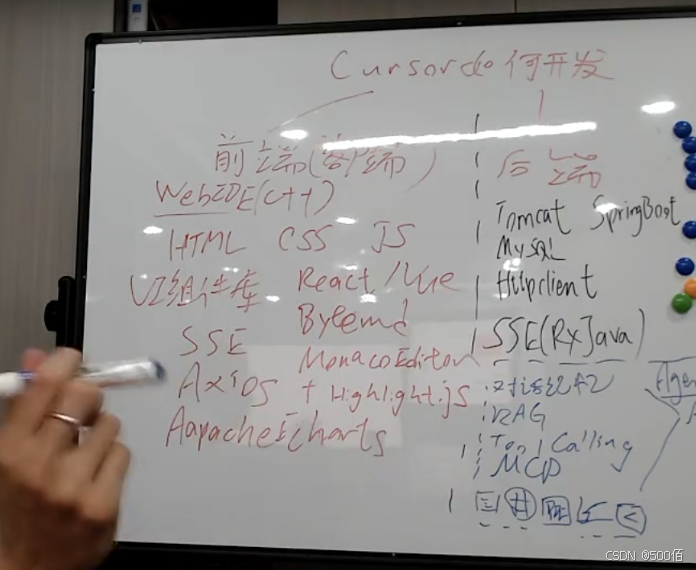 Cursor如何开发
前端(客户端)
WebIDE(C++)
HTML CSS JS
UI组件库 React/Vue
Bytemd
SSE
MonacoEditor
Axios + Highlight.js
AapacheEcharts
后端
Tomcat SpringBoot
MySQL
Httpclient
SSE(RxJava)
RAG
Tool Calling
MCP
Agen
CSDN @500佰